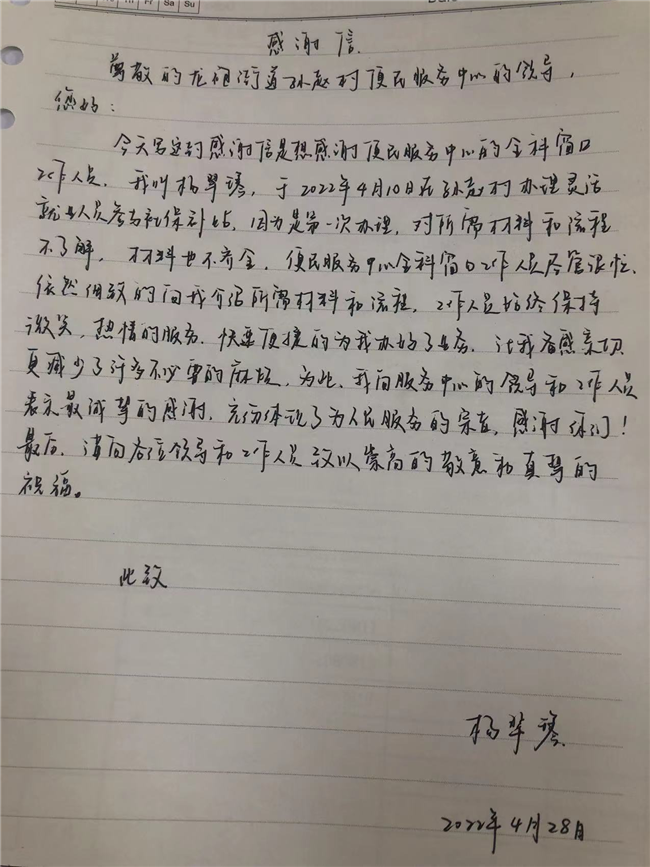 Th Fr Sa Su
感谢信
尊敬的龙祖街道孙赵村便民服务中心的领导,
您好:
今天写这封感谢信是想感谢便民服务中心的全科窗口
工作人员. 我叫杨翠琴, 于2022年4月10日在孙赵村办理灵活
就业人员参与社保补贴, 因为是第一次办理, 对所需材料和流程
不了解, 材料也不齐全. 便民服务中心全科窗口工作人员尽管很忙.
依然细致的向我介绍所需材料和流程, 工作人员始终保持
微笑, 热情的服务. 快速便捷的为我办好了业务. 让我倍感亲切
更减少了许多不必要的麻烦, 为此, 我向服务中心的领导和工作人员
表示最诚挚的感谢, 充份体现了为人民服务的宗旨, 感谢你们!
最后, 请向各位领导和工作人员致以崇高的敬意和真挚的
祝福。
此致
杨翠琴
2022年4月28日